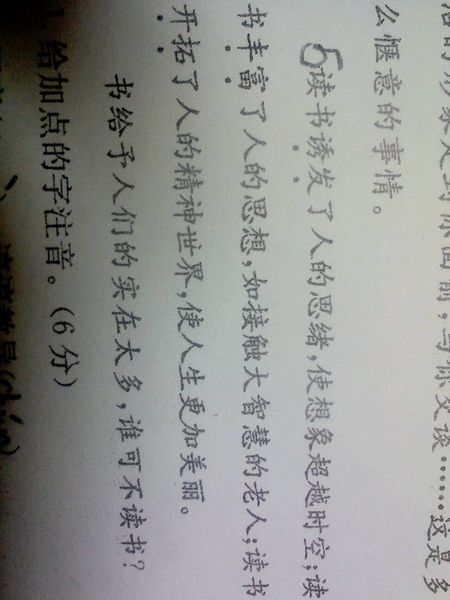 的形象走到你面前,与你交谈……这是多
么惬意的事情。
5读书诱发了人的思绪,使想象超越时空;读
书丰富了人的思想,如接触大智慧的老人;读书
开拓了人的精神世界,使人生更加美丽。
书给予人们的实在太多,谁可不读书?
1.给加点的字注音。(6分)